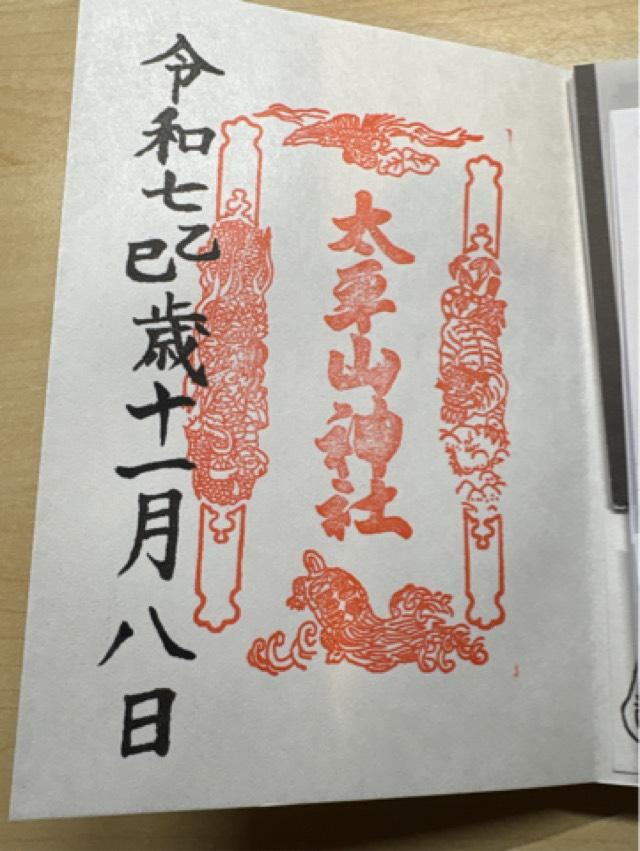 太平山神社
令和七乙巳歳十一月八日